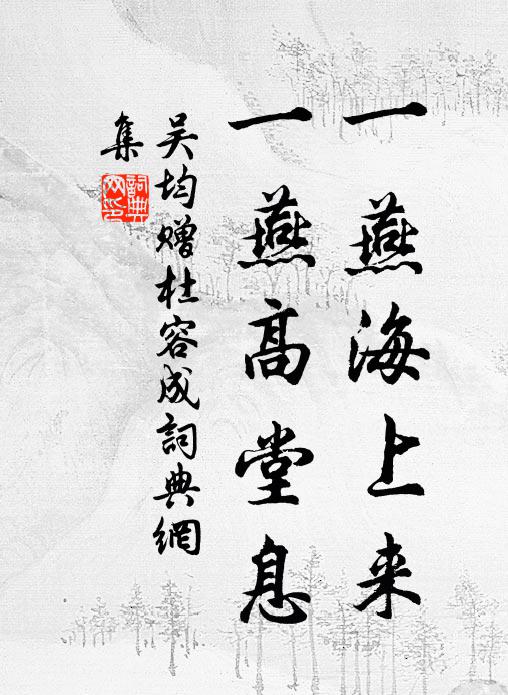 一燕海上来
一燕高堂息
吴均赠杜容成詞典網
集
詞典网印